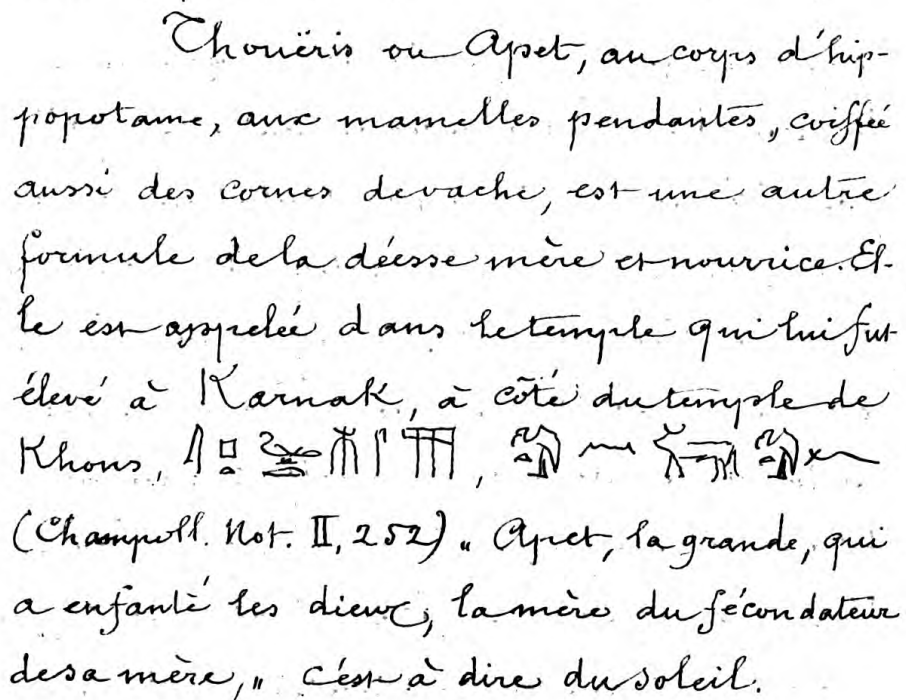 Thouëris ou Apet, au corps d'hip-
popotame, aux mamelles pendantes, coiffée
aussi des cornes de vache, est une autre
formule de la déesse mère et nourrice. El-
le est appelée dans le temple qui lui fut
élevé à Karnak, à côté du temple de
Khons,
(Champoll. Not. II, 252) „ Apet, la grande, qui
a enfanté les dieux, la mère du fécondateur
de sa mère, „ c'est à dire du soleil.